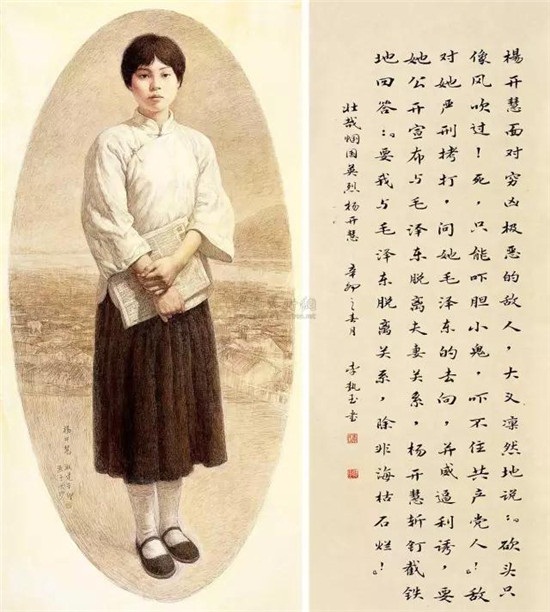 楊开慧
楊开慧面对穷凶极恶的敌人，大义凛然地说：“砍头只
像风吹过！死，只能吓胆小鬼，吓不住共产党人！”敌
对她严刑拷打，问她毛泽东的去向，并威逼利诱，要
她公开宣布与毛泽东脱离夫妻关系，杨开慧斩钉截铁
地回答：“要我与毛泽东脱离关系，除非海枯石烂！”
壮哉国英烈杨开慧 辛卯之春月 李执玉书